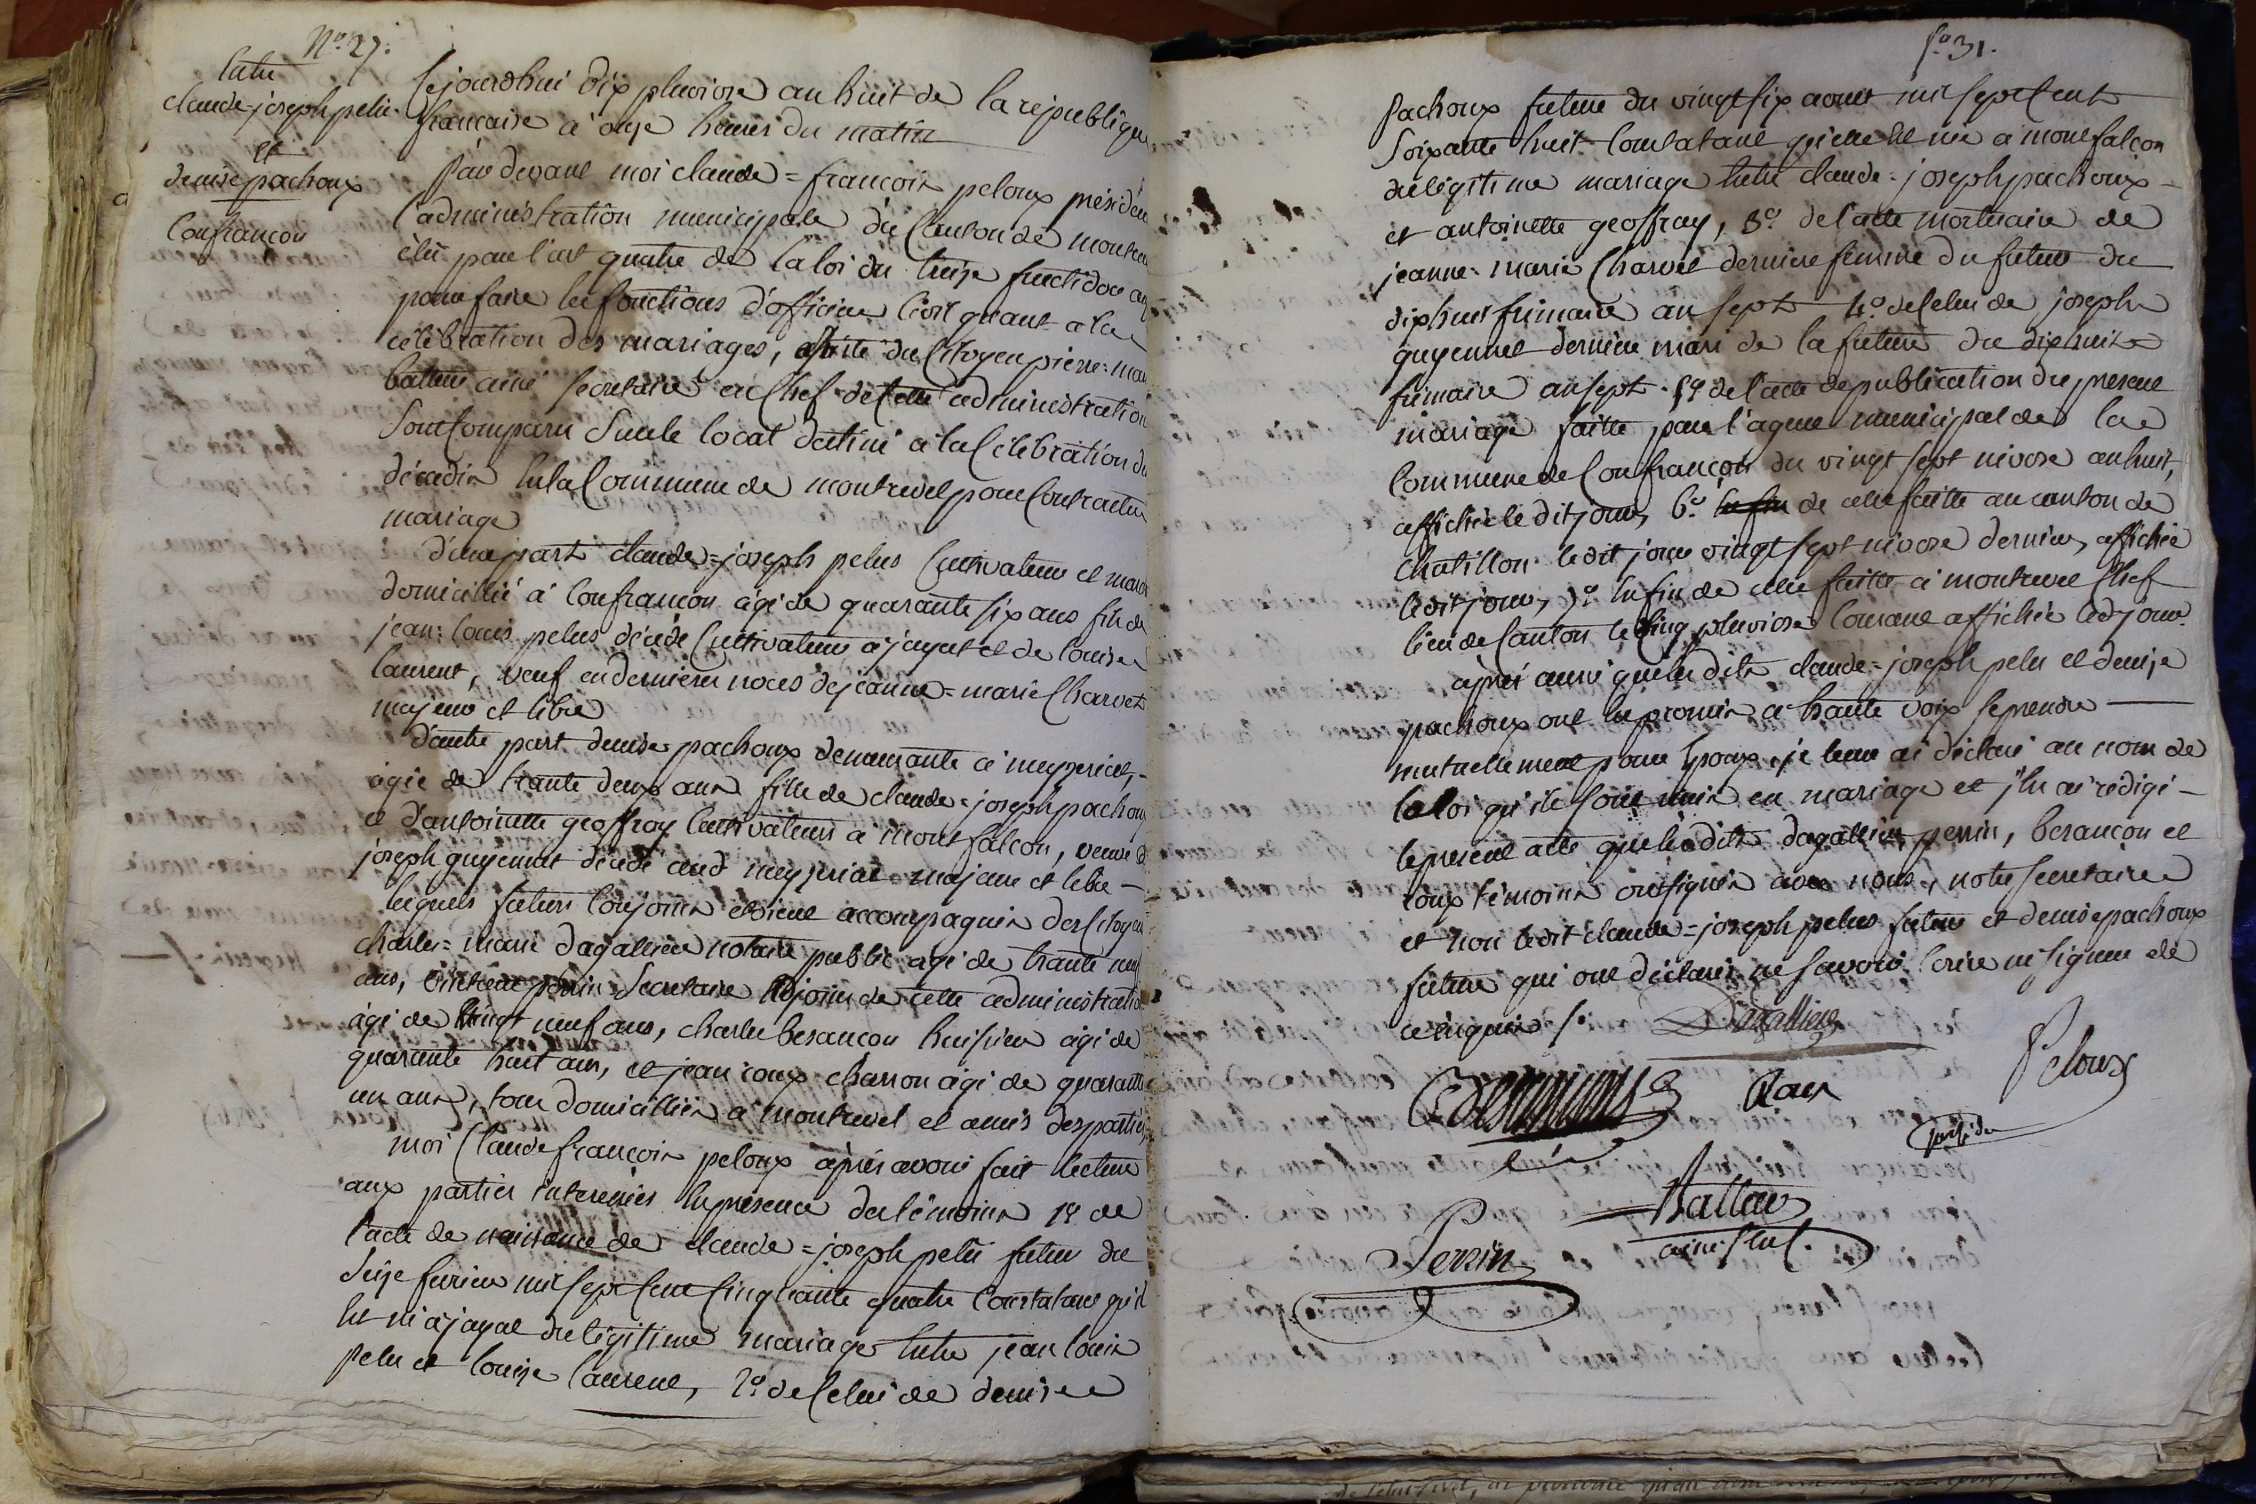 N.º 27.
Entre
claude-joseph pelu
et
denise pachoux
Confrançon
Cejourd'hui dix pluviose an huit de la république
française à onze heures du matin
Pardevant moi claude=françois peloux présiden
l'administration municipale du Canton de montrev
élu par l'art quatre de la loi du treize fructidor an
pour faire les fonctions d'officier Civil quant a la
célébration des mariages, assisté du Citoyen pierre=mari
secretaire en Chef de Cette administration
Sont Comparu Sur le local destiné a la Célébration du
décadis En la Commune de montrevel pour Contracter
mariage
d'une part claude=joseph pelus Cultivateur et
domicillié à Confrançon âgé de quarante six ans fils de
jean=louis pelus décédé Cultivateur à jayat et de louise
laurent, veuf en dernieres noces de jeanne=marie Charvet
majeur et libre
d'autre part denise pachoux demeurante à meyzeriat,
agée de trante deux ans fille de claude=joseph pachoux
et d'antoinette geoffray Cultivateurs à montfalcon, veuve d
joseph guyennet décédé aud meyzeriat majeure et libre
lesquels futurs Conjoints étoient accompagnés des Citoyens
charles=marie dagallier notaire public agé de trante neuf
ans, perrin Secretaire adjoint de cette administration
âgé de vingt neuf ans, charles besançon huissier agé de
quarante huit ans, et jean roux charron agé de quarante
un ans, tous domicilliés à montrevel et amis des parties
moi Claude françois peloux après avoir fait lecture
aux parties interessées En présence des témoins 1º de
l'acte de naissance de claude=joseph pelu futur du
Seize fevrier mil sept Cent Cinquante quatre Constatant qu'il
Est né à jayat du légitime mariage Entre jean louis
pelu et louise laurent, 2º de Celui de denise
fº 31.
Pachoux future du vingt six aoust mil sept Cent
Soixante huit Constatant qu'elle Est née à montfalcon
du légitime mariage Entre claude=joseph pachoux
et antoinette geoffray, 3º de l'acte mortuaire de
jeanne=marie Charvet derniere femme du futur du
dix huit frimaire an sept 4º de Celui de joseph
guyennet dernier mari de la future du dix huit
frimaire an sept. 5º de l'acte de publication du present
mariage faitte par l'agent municipal de la
Commune de Confrançon du vingt sept nivose an huit,
affichée ledit jour, 6º de celle faitte au canton de
chatillon ledit jour vingt sept nivose dernier, affichée
ledit jour, 7º Enfin de celle faitte à montrevel Chef
lieu de Canton le Cinq pluviose Courant affichée led jour.
après aussi que lesdits claude=joseph pelu et denise
pachoux ont Eu promis à haute voix Se prendre
mutuellement pour Epoux, je leur ai déclaré au nom de
la loi qu'ils Sont unis en mariage et j'En ai rédigé
le présent acte que lesdits dagallier, perrin, besançon et
roux témoins ont signés avec nous, notre secretaire
et non ledit claude=joseph pelus futur et denise pachoux
future qui ont déclarés ne Savoir Ecrire ni signer de
ce enquis /.
Dagallier
Peloux
Roux
présidt
Perrin
ainé